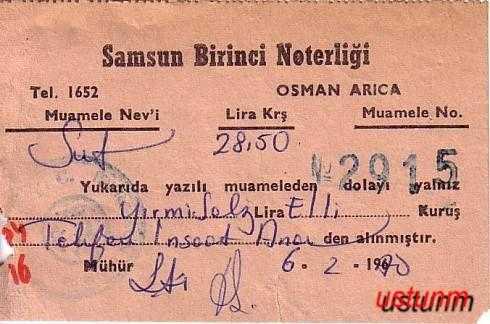 Samsun Birinci Noterliği
Tel. 1652 OSMAN ARICA
Muamele Nev'i Lira Krş Muamele No.
Suret 28,50 № 2915
Yukarıda yazılı muameleden dolayı yalnız
Yirmi Sekiz Lira Elli Kuruş
Telefon İnşaat den alınmıştır.
16 Mühür 6-2-1970
ustunm